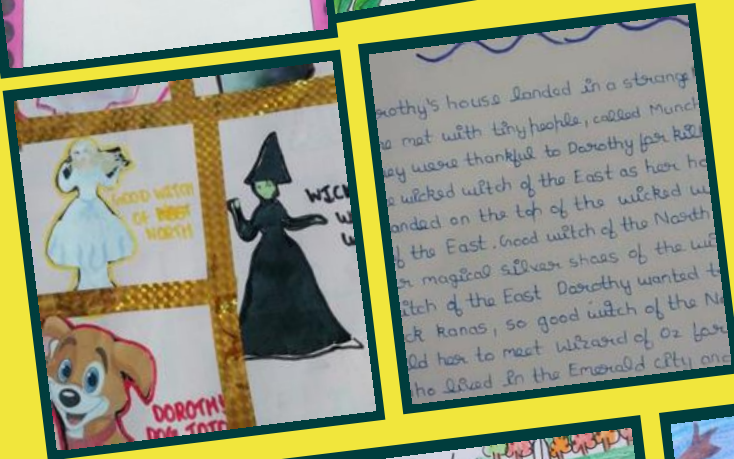 GOOD WITCH
OF WEST
NORTH
WICK
W
W
DOROTHY
DOG TOTO
rothy's house landed in a strange
e met with tiny people, called Munch
ey were thankful to Dorothy for kill
e wicked witch of the East as her ho
anded on the top of the wicked wi
f the East. Good witch of the North
r magical silver shoes of the wi
itch of the East Dorothy wanted t
ck Kanas, so good witch of the No
ld her to meet Wizard of Oz for
ho lived in the Emerald city and